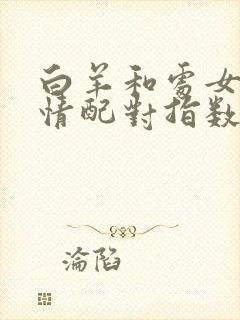 白羊和處女
情配對指数
淪陷